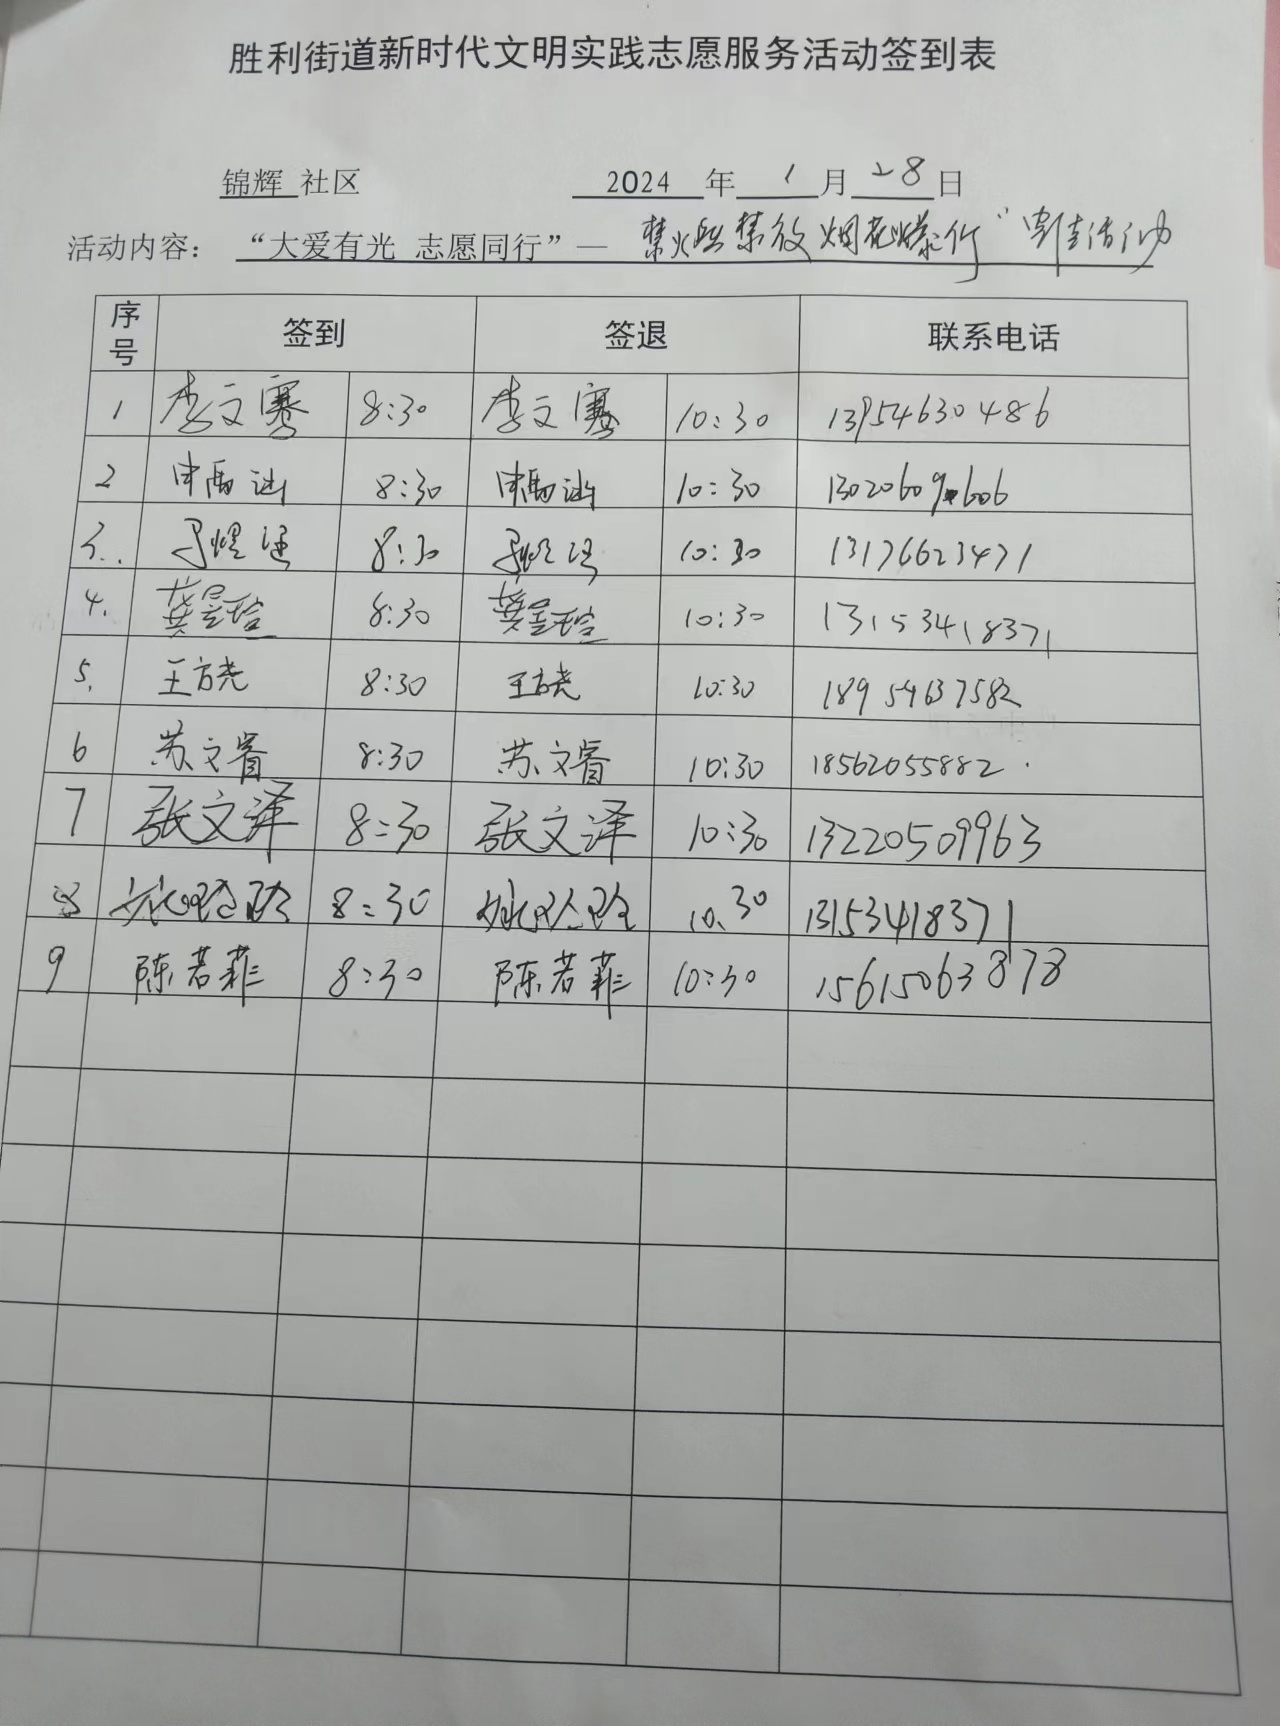 胜利街道新时代文明实践志愿服务活动签到表
锦辉 社区 2024 年 1 月 28 日
活动内容： “大爱有光 志愿同行”— 禁放烟花爆竹”宣传活动
序号 签到 签退 联系电话
1 李文骞 8:30 李文骞 10:30 13954630486
2 申雨涵 8:30 申雨涵 10:30 13020609606
3. 8:30 10:30 13176623471
4. 龚昱瑄 8:30 龚昱瑄 10:30 13153418371
5. 王方尧 8:30 王方尧 10:30 18954637582
6 苏文睿 8:30 苏文睿 10:30 18562055882
7 张文泽 8:30 张文泽 10:30 13220509963
8 8:30 10:30 13153418371
9 陈若菲 8:30 陈若菲 10:30 15615063878